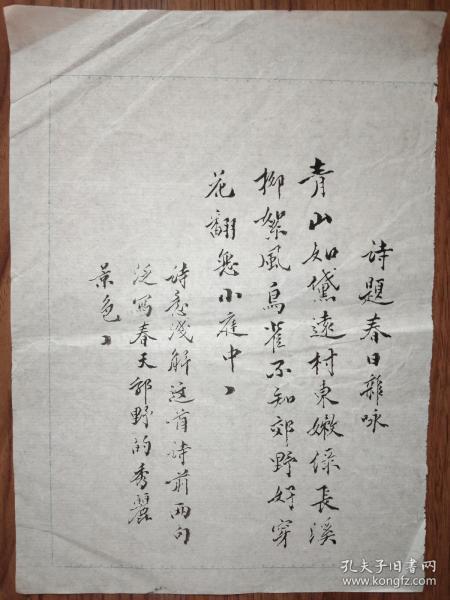 诗题春日雜咏
青山如黛遠村東嫩绿長溪
柳絮風鳥雀不知郊野好穿
花翻戀小庭中、
诗意浅解这首诗前两句
泛写春天郊野的秀麗
景色、
孔夫子旧书网
www.kongfz.com